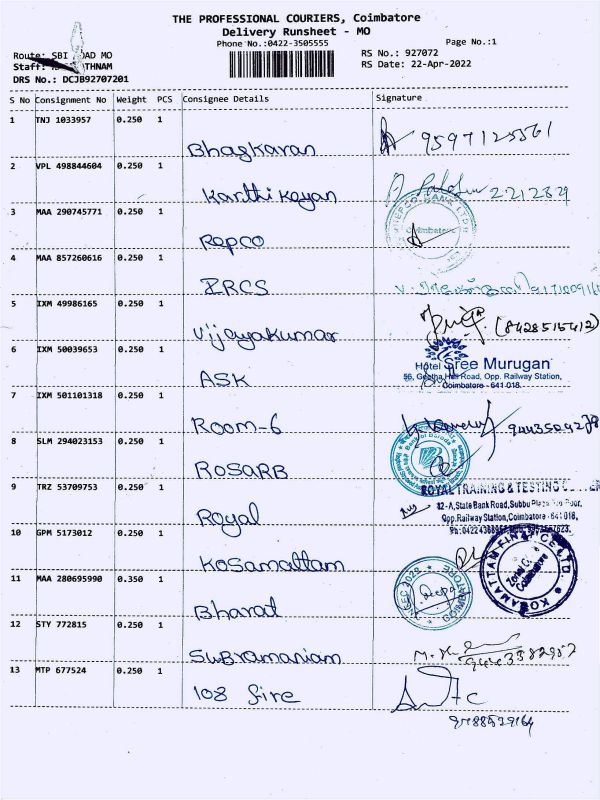 THE PROFESSIONAL COURIERS, Coimbatore
Delivery Runsheet - MO
Phone No.:0422-3505555
Page No.:1
Route: SBI ROAD MO
RS No.: 927072
Staff: THNAM
RS Date: 22-Apr-2022
DRS No.: DCJB92707201
S No Consignment No Weight PCS Consignee Details Signature
1 TNJ 1033957 0.250 1
Bhaskaran 9597125561
2 VPL 498844604 0.250 1
Karthikeyan 2212829
3 MAA 290745771 0.250 1
Repco
REPCO BANK LTD
Coimbatore
4 MAA 857260616 0.250 1
IRCS
5 IXM 49986165 0.250 1
Vijayakumar (8428515412)
6 IXM 50039653 0.250 1
ASK
Hotel Sree Murugan
56, Geetha Hall Road, Opp. Railway Station,
Coimbatore - 641 018.
7 IXM 501101318 0.250 1
Room-6
8 SLM 294023153 0.250 1
ROSARB
Bank of Baroda
9 TRZ 53709753 0.250 1
Royal
ROYAL TRAINING & TESTING
32-A, State Bank Road, Subbu
Opp.Railway Station, Coimbatore - 641 018,
10 GPM 5173012 0.250 1
Kosamattam
KOSAMATTAM FINANCE LTD.
Coimbatore
11 MAA 280695990 0.350 1
Bharat
12 STY 772815 0.250 1
Subramaniam
13 MTP 677524 0.250 1
108 fire